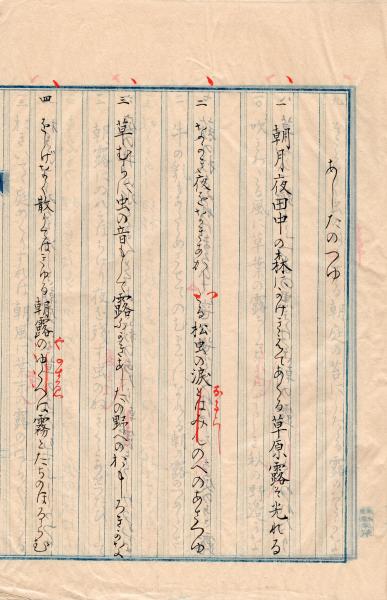 あしたのつゆ
一 朝月夜田中の森にかけきえてあくる草原露そ光れる
二 なかき夜をなきあかしつる松虫の涙とはみしのへのあさつゆ
なるらし
三 草むらに虫の音もして露ふかきあしたの野へのおもしろきかな
四 をしげなく散てはみゆる朝露のゆくへは霧とたちのほるらむ